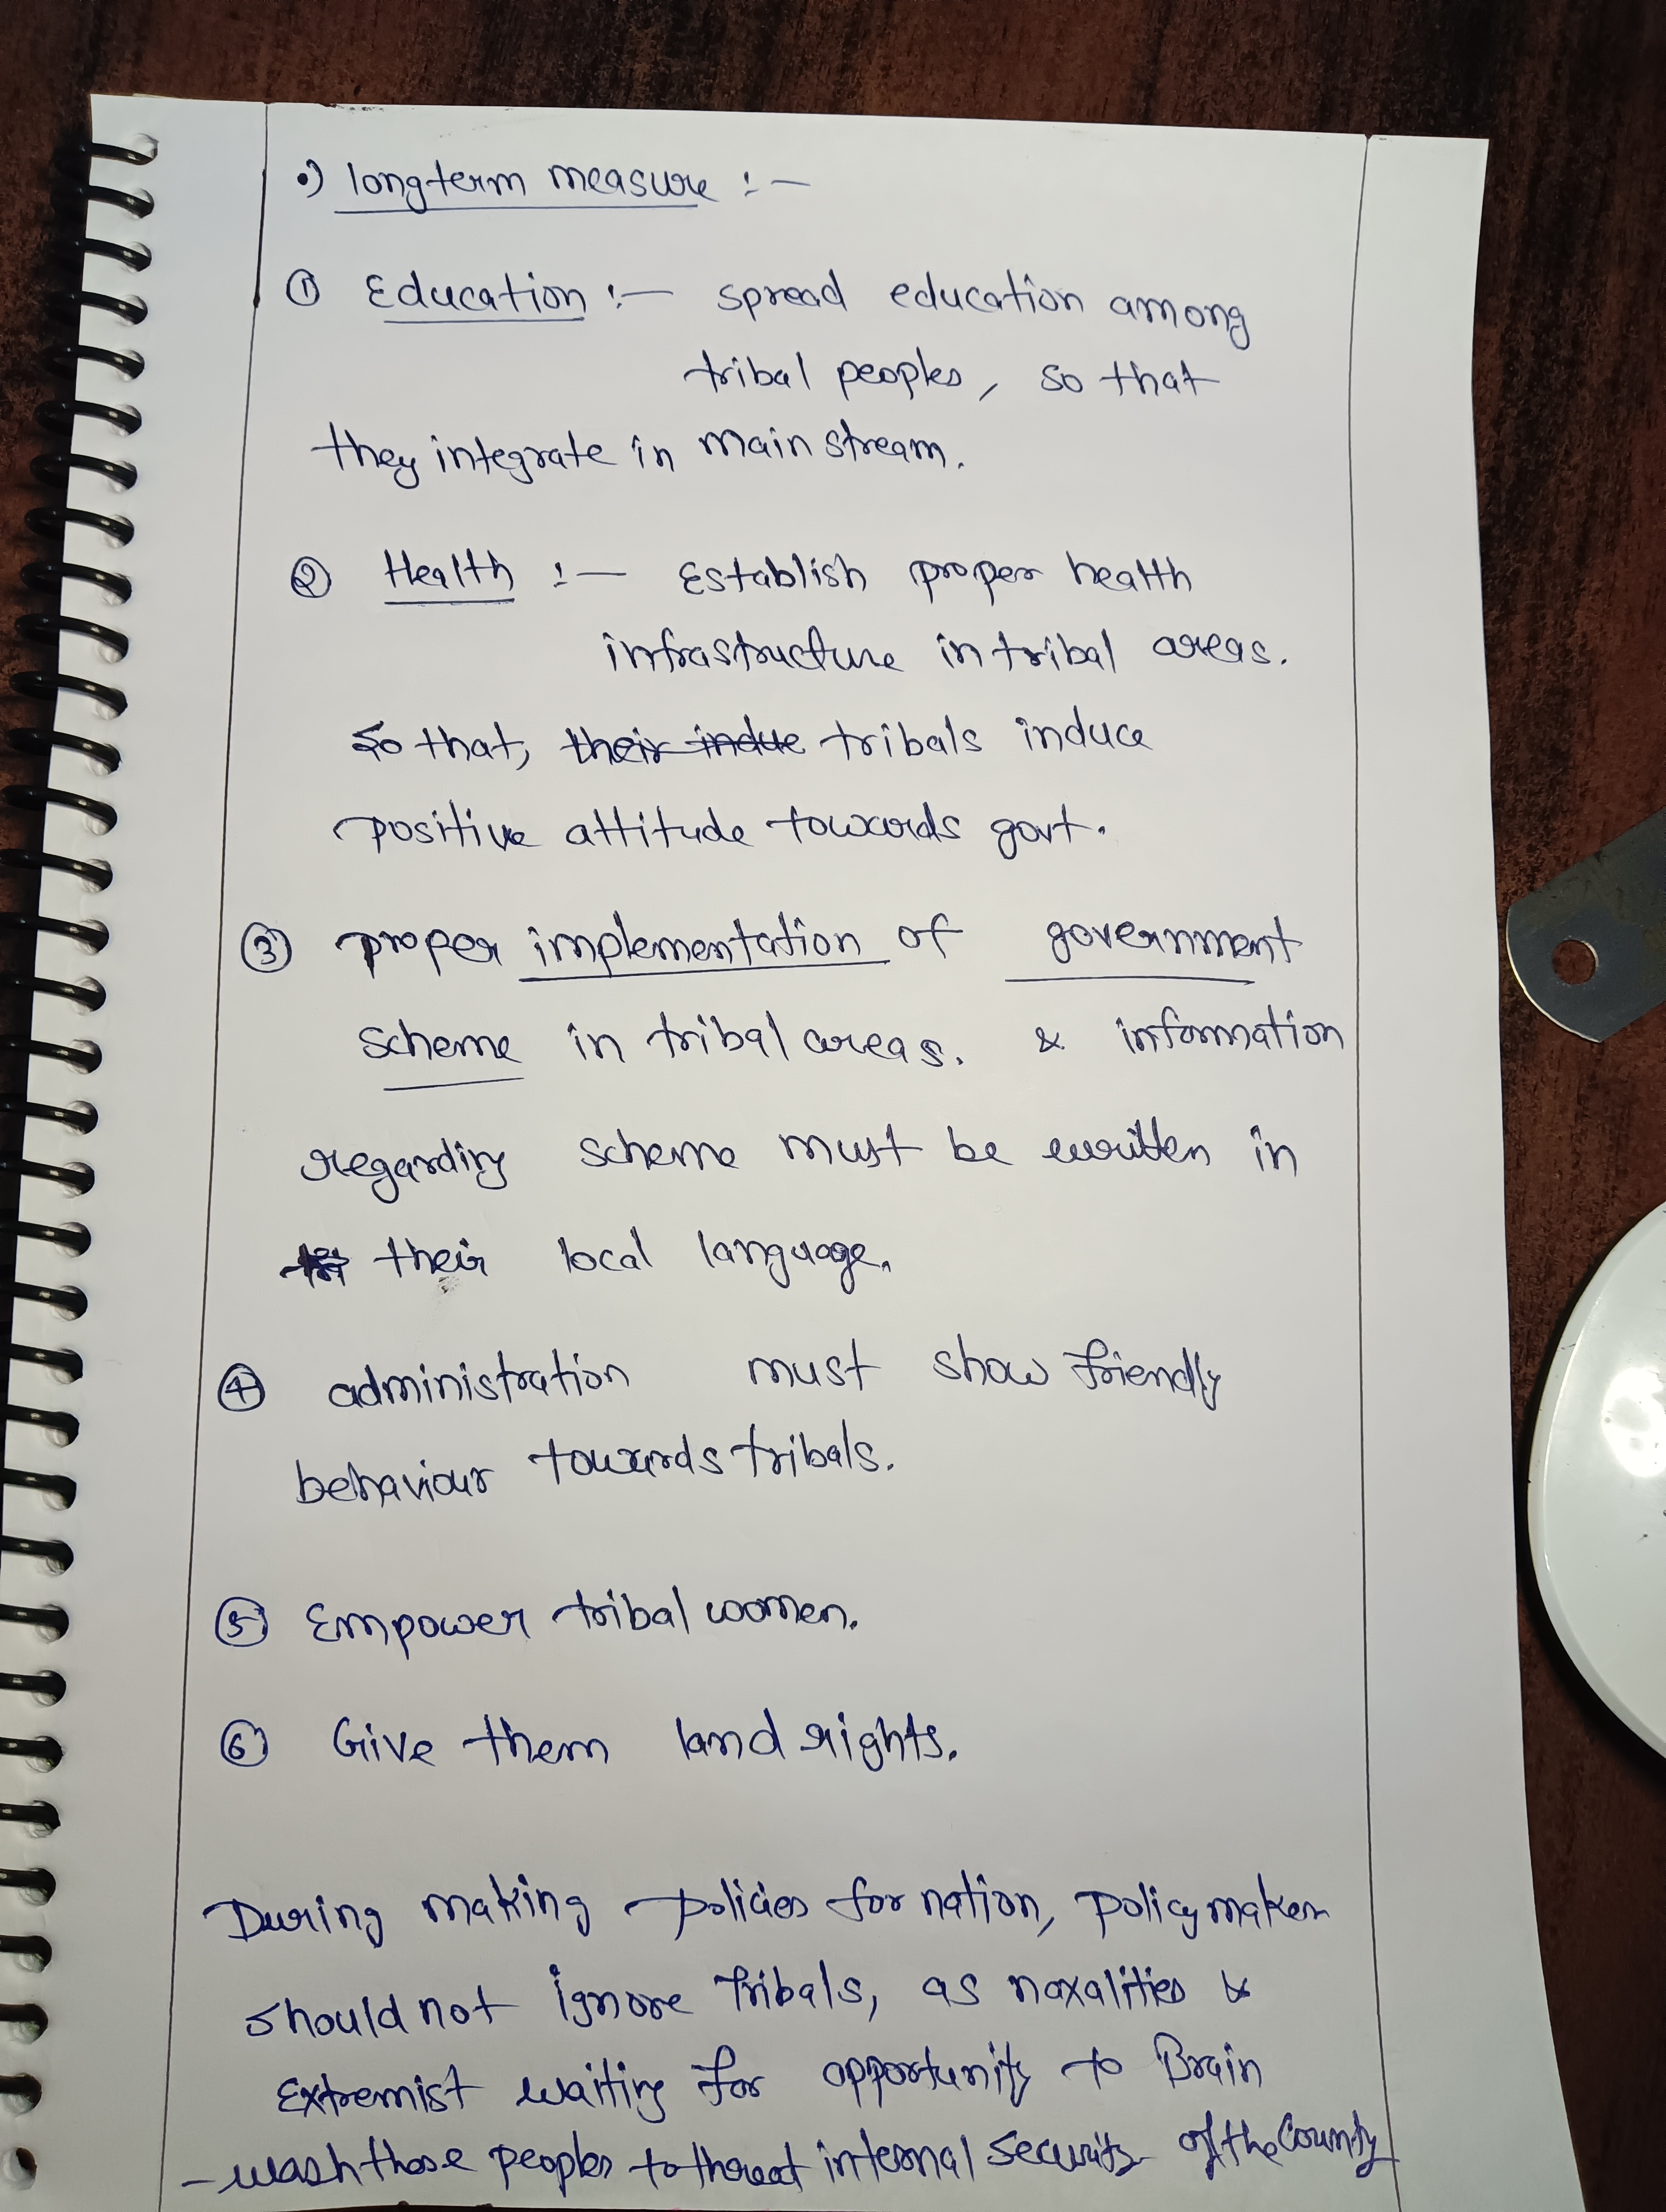 •) longterm measure :-
① Education :- spread education among
tribal peoples, so that
they integrate in main stream.
② Health :- Establish proper health
infrastructure in tribal areas.
So that, their indue tribals induce
positive attitude towards govt.
③ proper implementation of government
scheme in tribal areas. & information
regarding scheme must be written in
their local language.
④ administration must show friendly
behaviour towards tribals.
⑤ Empower tribal women.
⑥ Give them land rights.
During making policies for nation, policy maker
should not ignore tribals, as naxalities &
Extremist waiting for opportunity to Brain
-wash those peoples to threat internal security of the County